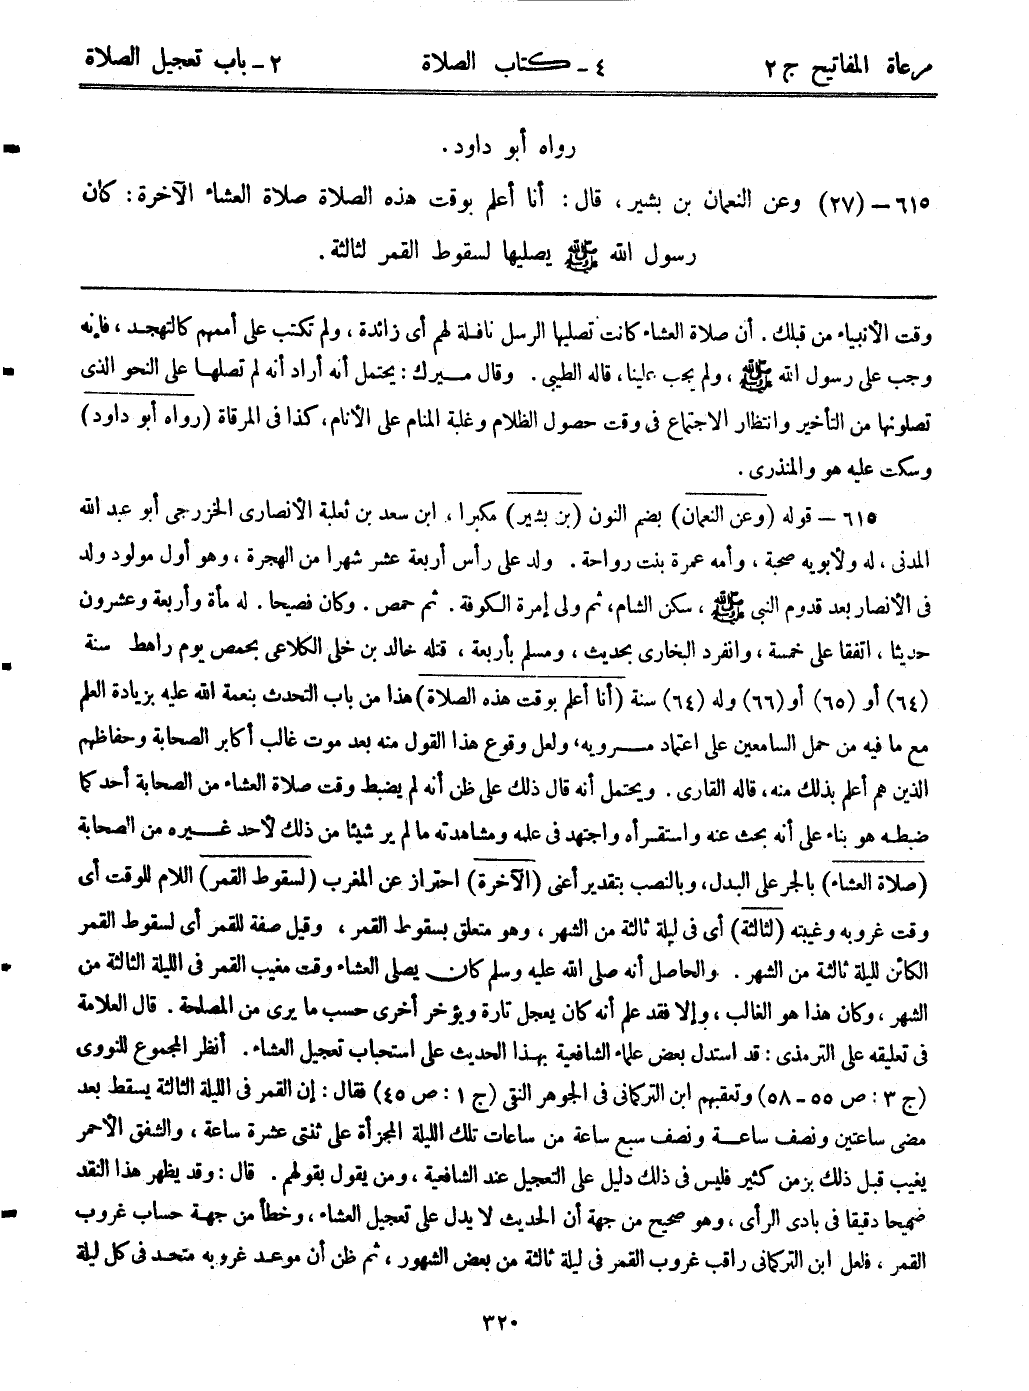 مرعاة المفاتيح ج ٢ ٤ - كتاب الصلاة ٢ - باب تعجيل الصلاة
رواه أبو داود .
٦١٥ - (٢٧) وعن النعمان بن بشير ، قال : أنا أعلم بوقت هذه الصلاة صلاة العشاء الآخرة : كان
رسول الله ﷺ يصليها لسقوط القمر لثالثة .
وقت الأنبياء من قبلك . أن صلاة العشاء كانت تصليها الرسل نافلة لهم أى زائدة ، ولم تكتب على أممهم كالتهجد ، فإنه
وجب على رسول الله ﷺ ، ولم يجب علينا ، قاله الطيبى . وقال ميرك : يحتمل أنه أراد أنه لم تصلها على النحو الذى
تصلونها من التأخير وانتظار الاجتماع فى وقت حصول الظلام وغلبة المنام على الأنام ، كذا فى المرقاة (رواه أبو داود)
وسكت عليه هو والمنذرى .
٦١٥ - قوله (وعن النعمان) بضم النون (بن بشير) مكبرا ، ابن سعد بن ثعلبة الأنصارى الخزرجى أبو عبد الله
المدنى ، له ولأبويه صحبة ، وأمه عمرة بنت رواحة . ولد على رأس أربعة عشر شهرا من الهجرة ، وهو أول مولود ولد
فى الأنصار بعد قدوم النبى ﷺ ، سكن الشام ، ثم ولى إمرة الكوفة . ثم حمص . وكان فصيحا . له مأة وأربعة وعشرون
حديثا ، اتفقا على خمسة ، وانفرد البخارى بحديث ، ومسلم بأربعة ، قتله خالد بن خلى الكلاعى بحمص يوم راهط سنة
(٦٤) أو (٦٥) أو (٦٦) وله (٦٤) سنة (أنا أعلم بوقت هذه الصلاة) هذا من باب التحدث بنعمة الله عليه بزيادة العلم
مع ما فيه من حمل السامعين على اعتماد مرويه ، ولعل وقوع هذا القول منه بعد موت غالب أكابر الصحابة وحفاظهم
الذين هم أعلم بذلك منه ، قاله القارى . ويحتمل أنه قال ذلك على ظن أنه لم يضبط وقت صلاة العشاء من الصحابة أحد كما
ضبطه هو بناء على أنه بحث عنه واستقرأه واجتهد فى علمه ومشاهدته ما لم ير شيئا من ذلك لأحد غيره من الصحابة
(صلاة العشاء) بالجر على البدل ، وبالنصب بتقدير أعنى (الآخرة) احتراز عن المغرب (لسقوط القمر) اللام للوقت أى
وقت غروبه وغيبته (لثالثة) أى فى ليلة ثالثة من الشهر ، وهو متعلق بسقوط القمر ، وقيل صفة للقمر أى لسقوط القمر
الكائن لليلة ثالثة من الشهر . والحاصل أنه صلى الله عليه وسلم كان يصلى العشاء وقت مغيب القمر فى الليلة الثالثة من
الشهر ، وكان هذا هو الغالب ، وإلا فقد علم أنه كان يعجل تارة ويؤخر أخرى حسب ما يرى من المصلحة . قال العلامة
فى تعليقه على الترمذى : قد استدل بعض علماء الشافعية بهذا الحديث على استحباب تعجيل العشاء . أنظر المجموع للنووى
(ج ٣ : ص ٥٥ - ٥٨) وتعقبهم ابن التركمانى فى الجوهر النقى (ج ١ : ص ٤٥) فقال : إن القمر فى الليلة الثالثة يسقط بعد
مضى ساعتين ونصف ساعة ونصف سبع ساعة من ساعات تلك الليلة المجزأة على ثنتى عشرة ساعة ، والشفق الأحمر
يغيب قبل ذلك بزمن كثير فليس فى ذلك دليل على التعجيل عند الشافعية ، ومن يقول بقولهم . قال : وقد يظهر هذا النقد
صحيحا دقيقا فى بادى الرأى ، وهو صحيح من جهة أن الحديث لا يدل على تعجيل العشاء ، وخطأ من جهة حساب غروب
القمر ، فلعل ابن التركمانى راقب غروب القمر فى ليلة ثالثة من بعض الشهور ، ثم ظن أن موعد غروبه متحد فى كل ليلة
٣٢٠